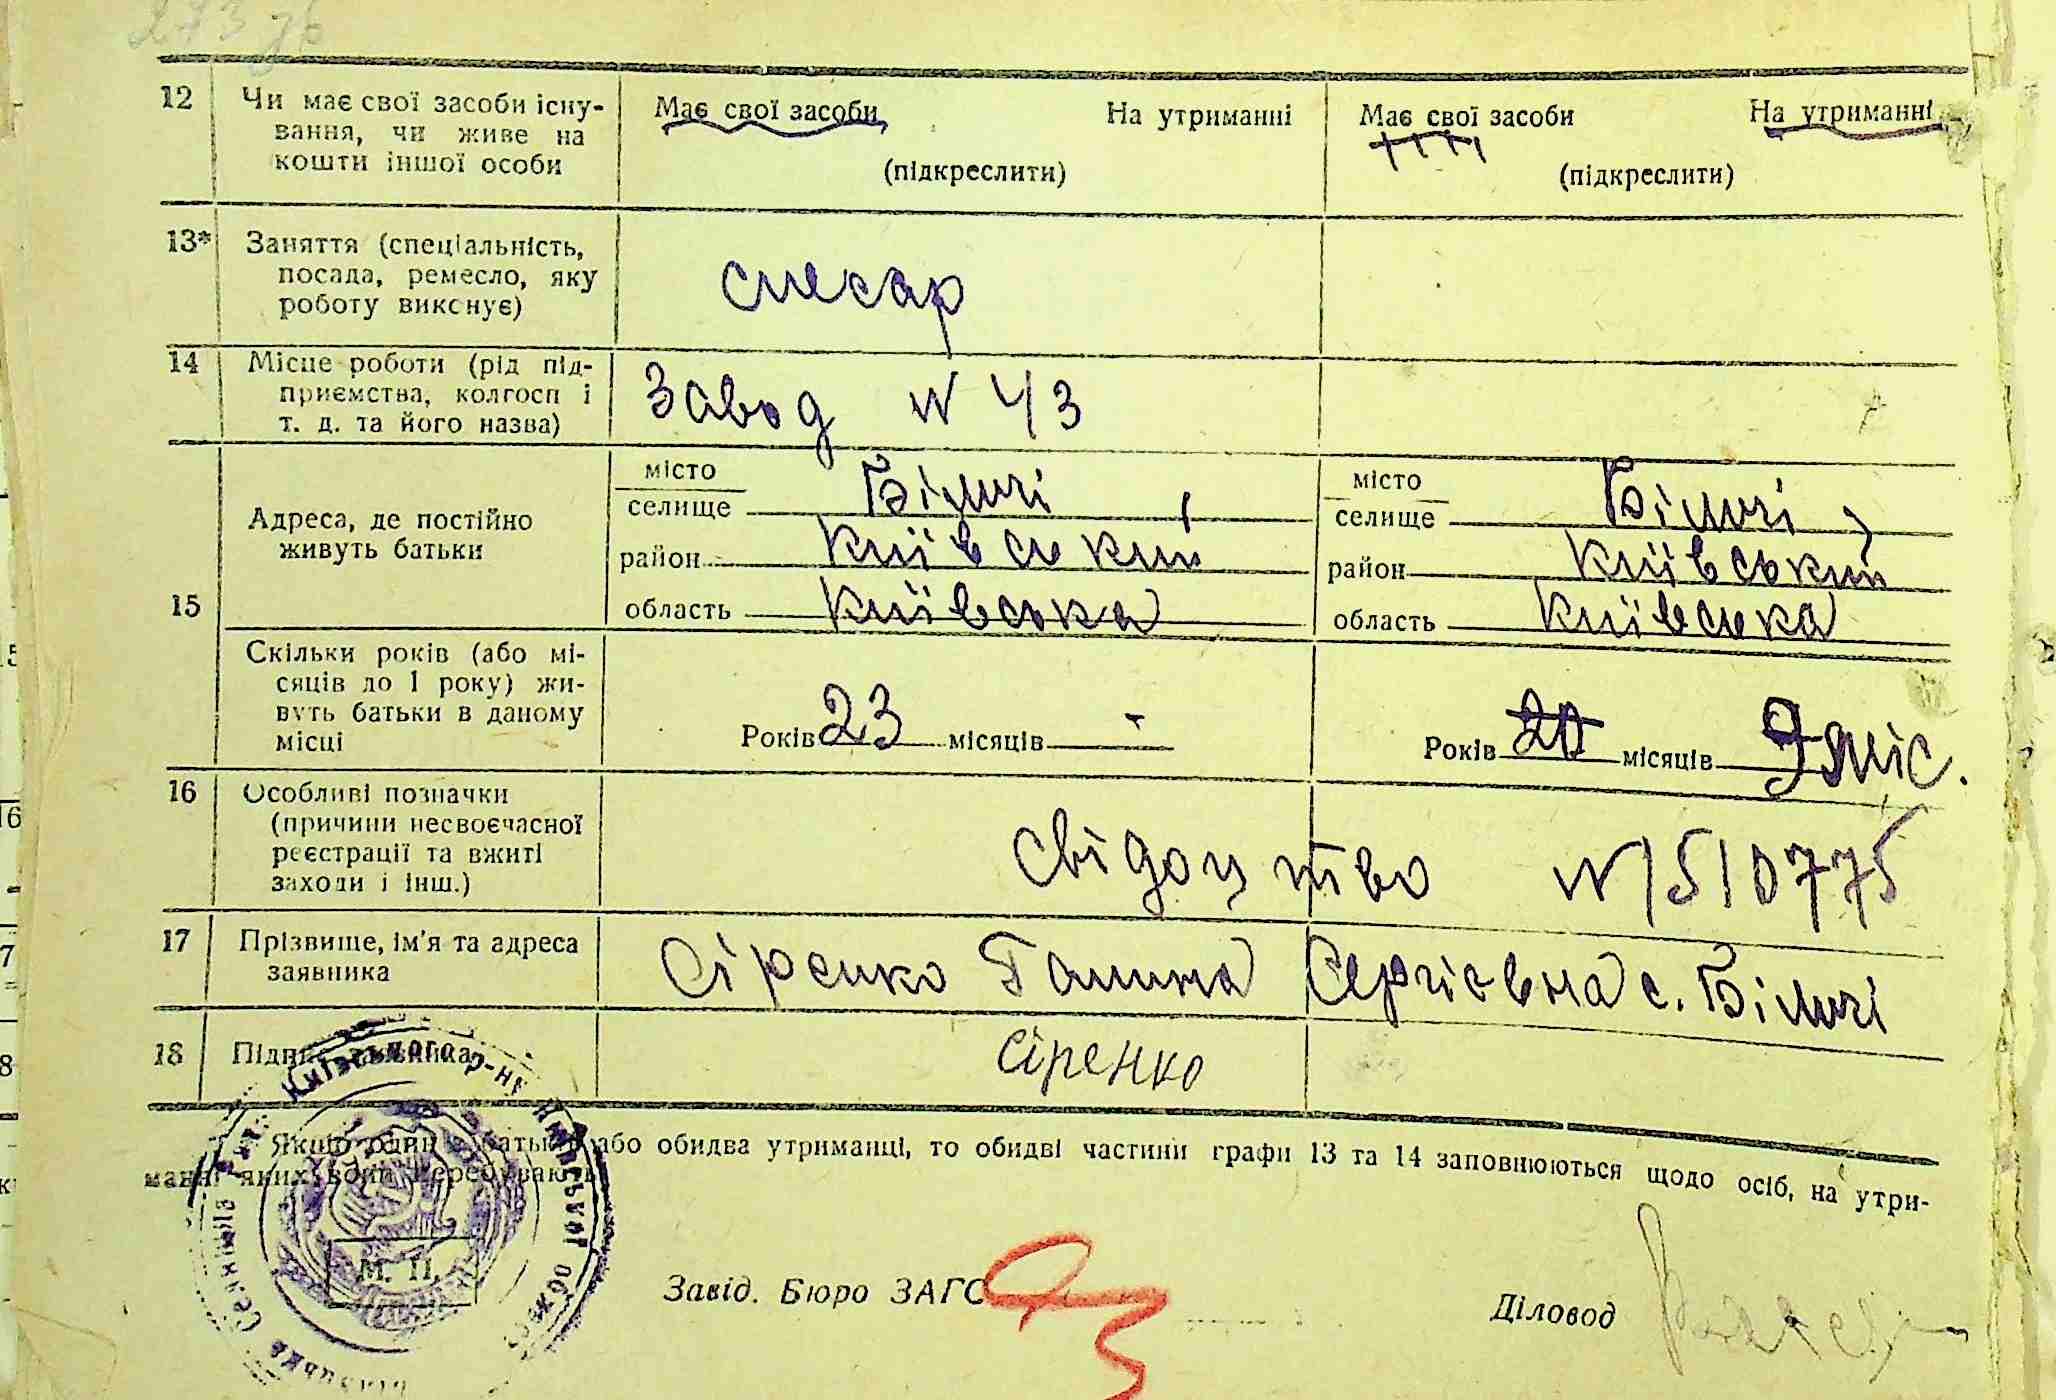 273 зв
12 Чи має свої засоби існу-
вання, чи живе на
кошти іншої особи
Має свої засоби На утриманні
(підкреслити)
Має свої засоби На утриманні
(підкреслити)
13* Заняття (спеціальність,
посада, ремесло, яку
роботу виконує)
слесар
14 Місце роботи (рід під-
приємства, колгосп і
т. д. та його назва)
Завод N 43
15 Адреса, де постійно
живуть батьки
місто
селище Біличі,
район Київський
область Київська
місто
селище Біличі,
район Київський
область Київська
Скільки років (або мі-
сяців до 1 року) жи-
вуть батьки в даному
місці
Років 23 місяців -
Років 20 місяців 9 міс.
16 Особливі позначки
(причини несвоєчасної
реєстрації та вжиті
заходи і інш.)
свідоцтво N 1510775
17 Прізвище, ім'я та адреса
заявника
Сіренко Галина Сергієвна с. Біличі
18 Підпис заявника
Сіренко
Якщо один з батьків або обидва утриманці, то обидві частини графи 13 та 14 заповнюються щодо осіб, на утри-
манні яких вони перебувають
Київського р-ну Київської обл.
М. П.
Завід. Бюро ЗАГС
Діловод